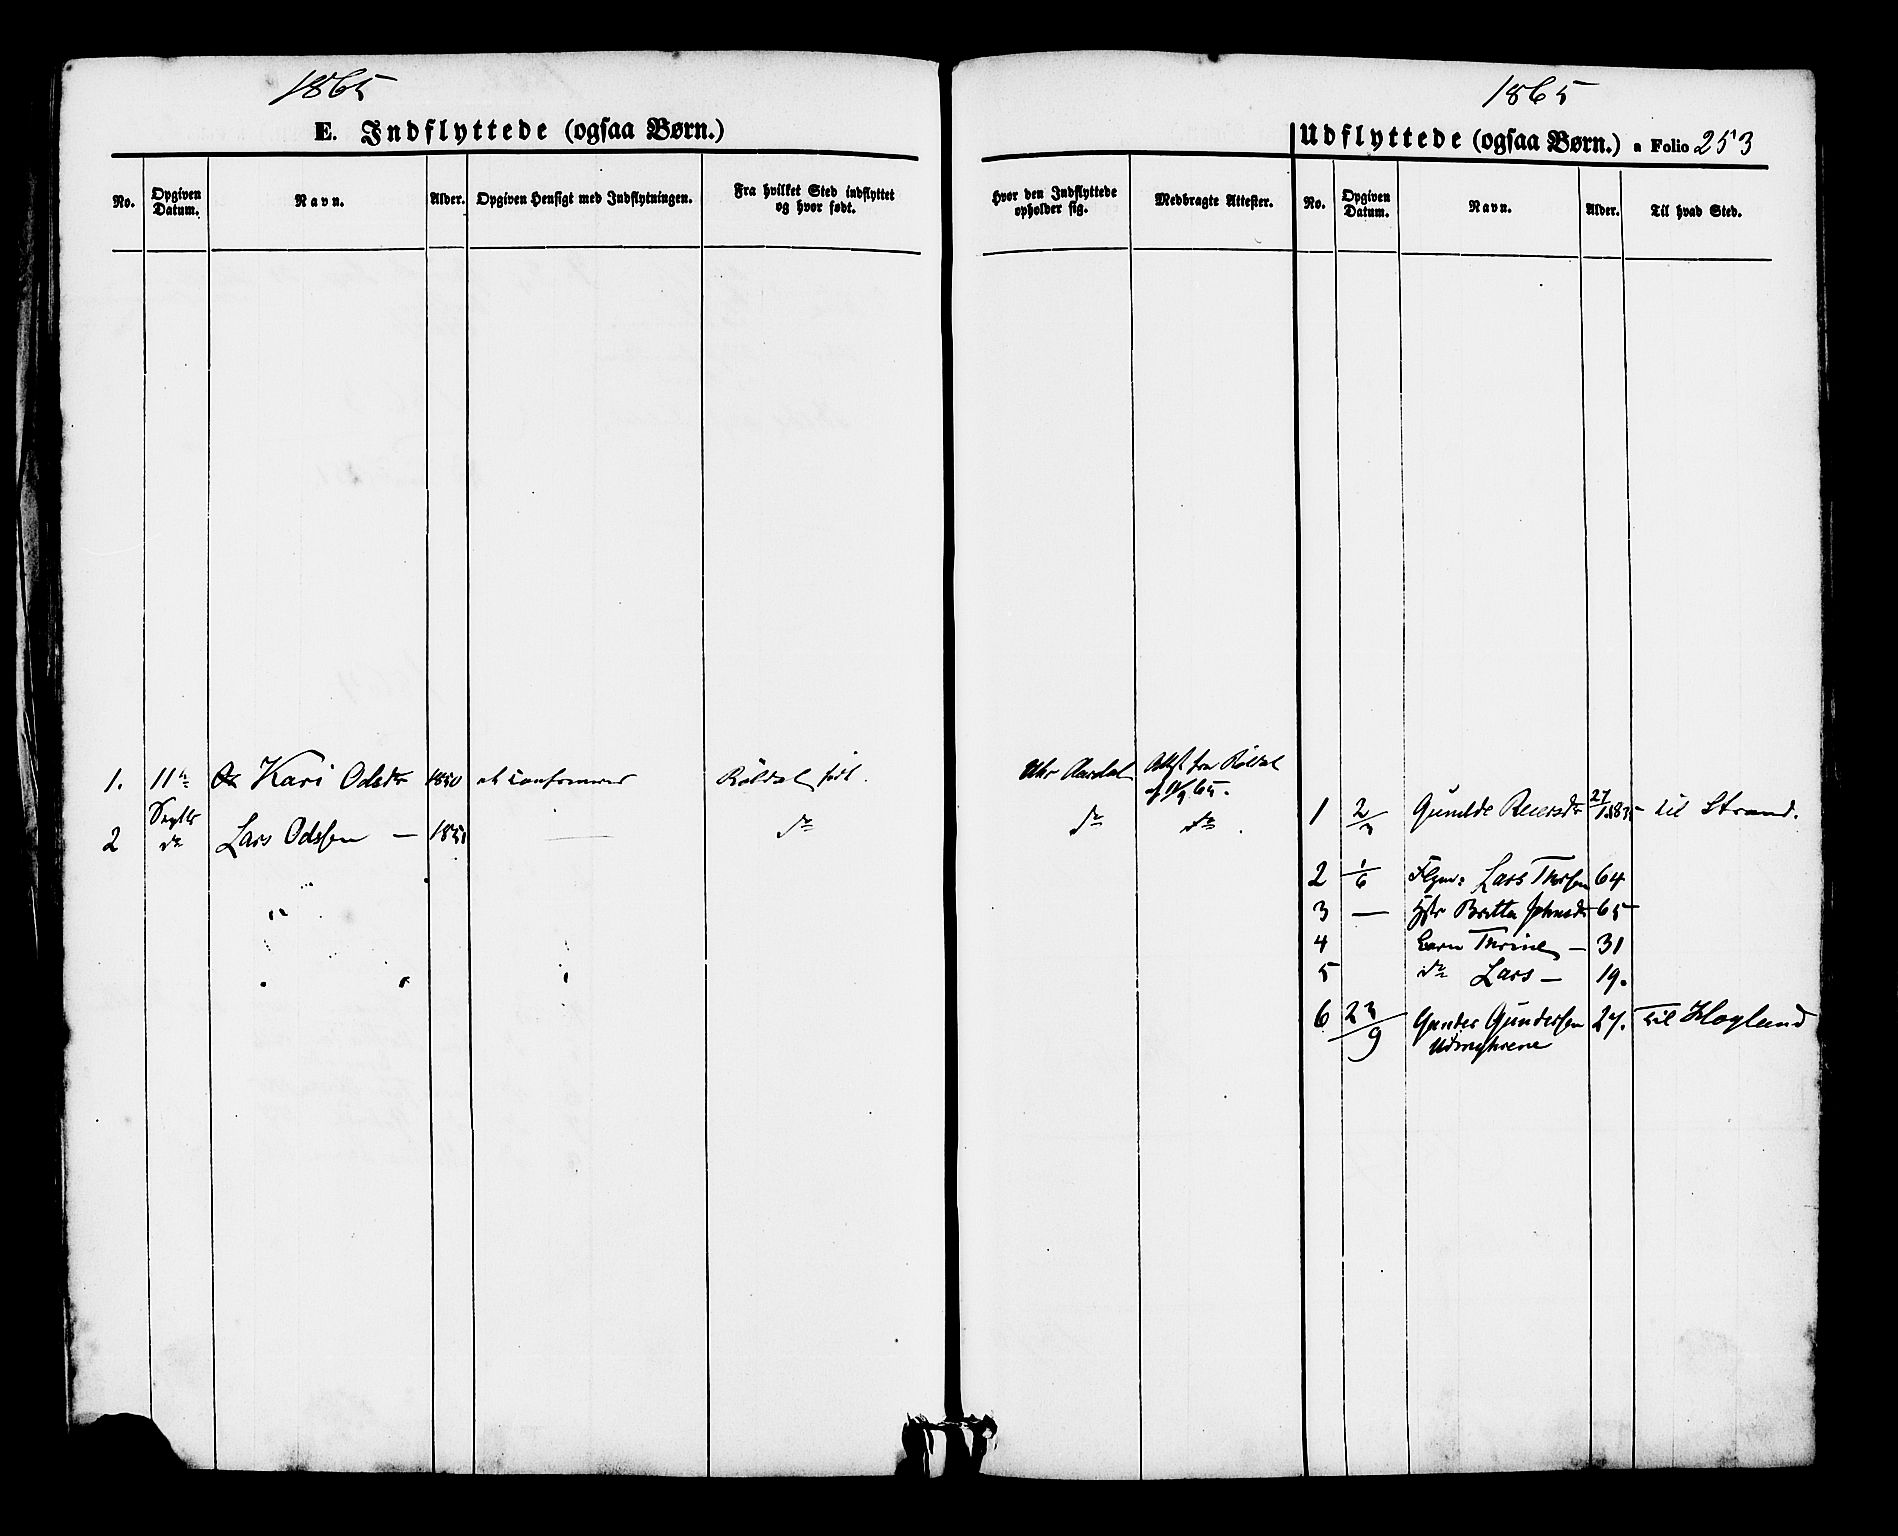 1865
E. Indflyttede (ogsaa Børn.)
No.
Opgiven Datum.
Navn.
Alder.
Opgiven Hensigt med Indflytningen.
Fra hvilket Sted indflyttet og hvor født.
1. 11te Kari Odsdr 1850 at confirmeres Röldal født.
Septbr
2 do Lars Odssen — 1851 — do
1865
Udflyttede (ogsaa Børn.) a Folio 253
Hvor den Indflyttede opholder sig.
Medbragte Attester.
No.
Opgiven Datum.
Navn.
Alder.
Til hvad Sted.
Aardal Attest fra Röldal
af 11/9 65.
do do
1 2/3 Gunilde Reiersdr til Strand.
2 1/6 Lars Thorsen 64
3 — Britta Johnsdr 65
4 barn Thrine — 31
5 do Lars — 19.
6 23/9 Gunder Gundersen 27. til Hogland